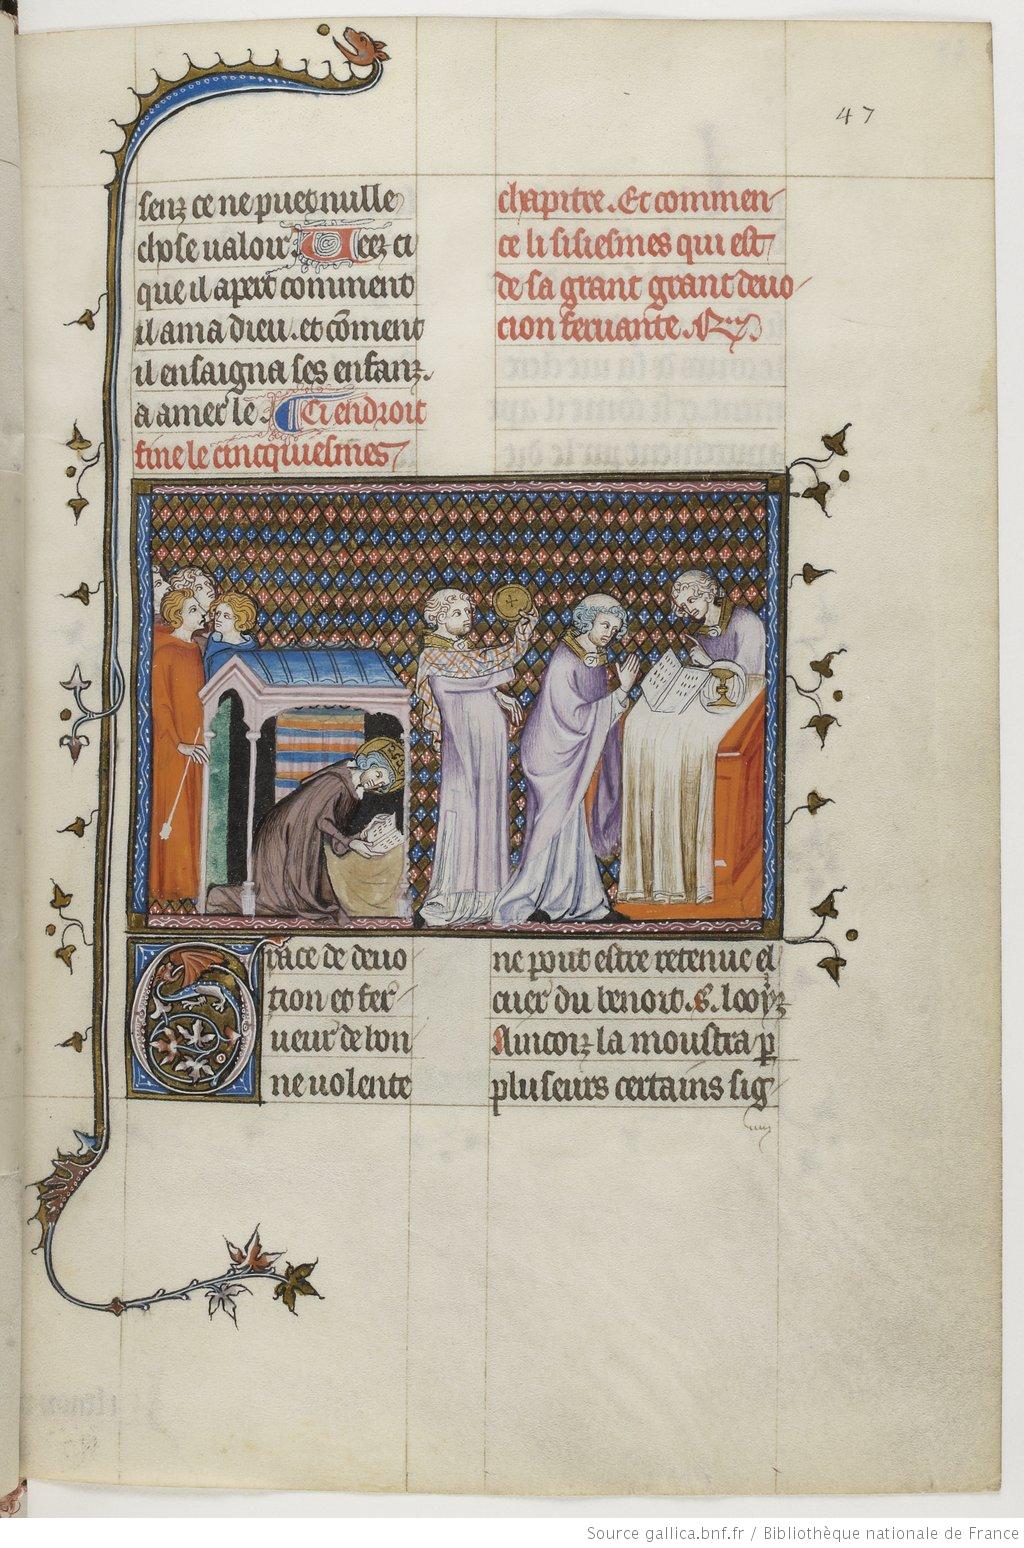 47
senz ce ne puet nulle
chose ualoir. Veez ci
que il apert comment
il ama dieu. et cōment
il ensaigna ses enfanz.
a amer le. Ci endroit
fine le cincquiesmes
chapitre. Et commen
ce li sisiesmes qui est
de sa grant grant deuo
cion feruante.
Grace de deuo
tion et fer
ueur de bon
ne uolente
ne pout estre retenue el
cuer du benoit. s. looyz
Aincoiz la moustra p
pluseurs certains sig
Source gallica.bnf.fr / Bibliothèque nationale de France